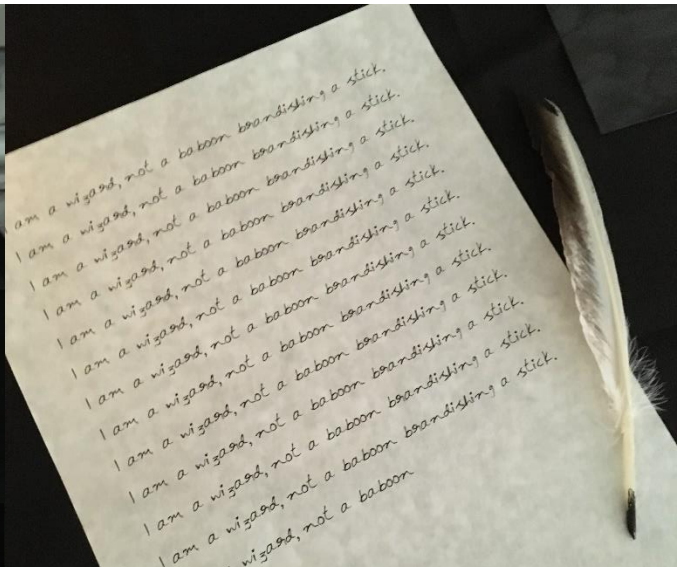 am a wizard, not a baboon brandishing a stick.
I am a wizard, not a baboon brandishing a stick.
I am a wizard, not a baboon brandishing a stick.
I am a wizard, not a baboon brandishing a stick.
I am a wizard, not a baboon brandishing a stick.
I am a wizard, not a baboon brandishing a stick.
I am a wizard, not a baboon brandishing a stick.
I am a wizard, not a baboon brandishing a stick.
I am a wizard, not a baboon brandishing a stick.
I am a wizard, not a baboon brandishing a stick.
I am a wizard, not a baboon brandishing a stick.
I am a wizard, not a baboon brandishing a stick.
wizard, not a baboon